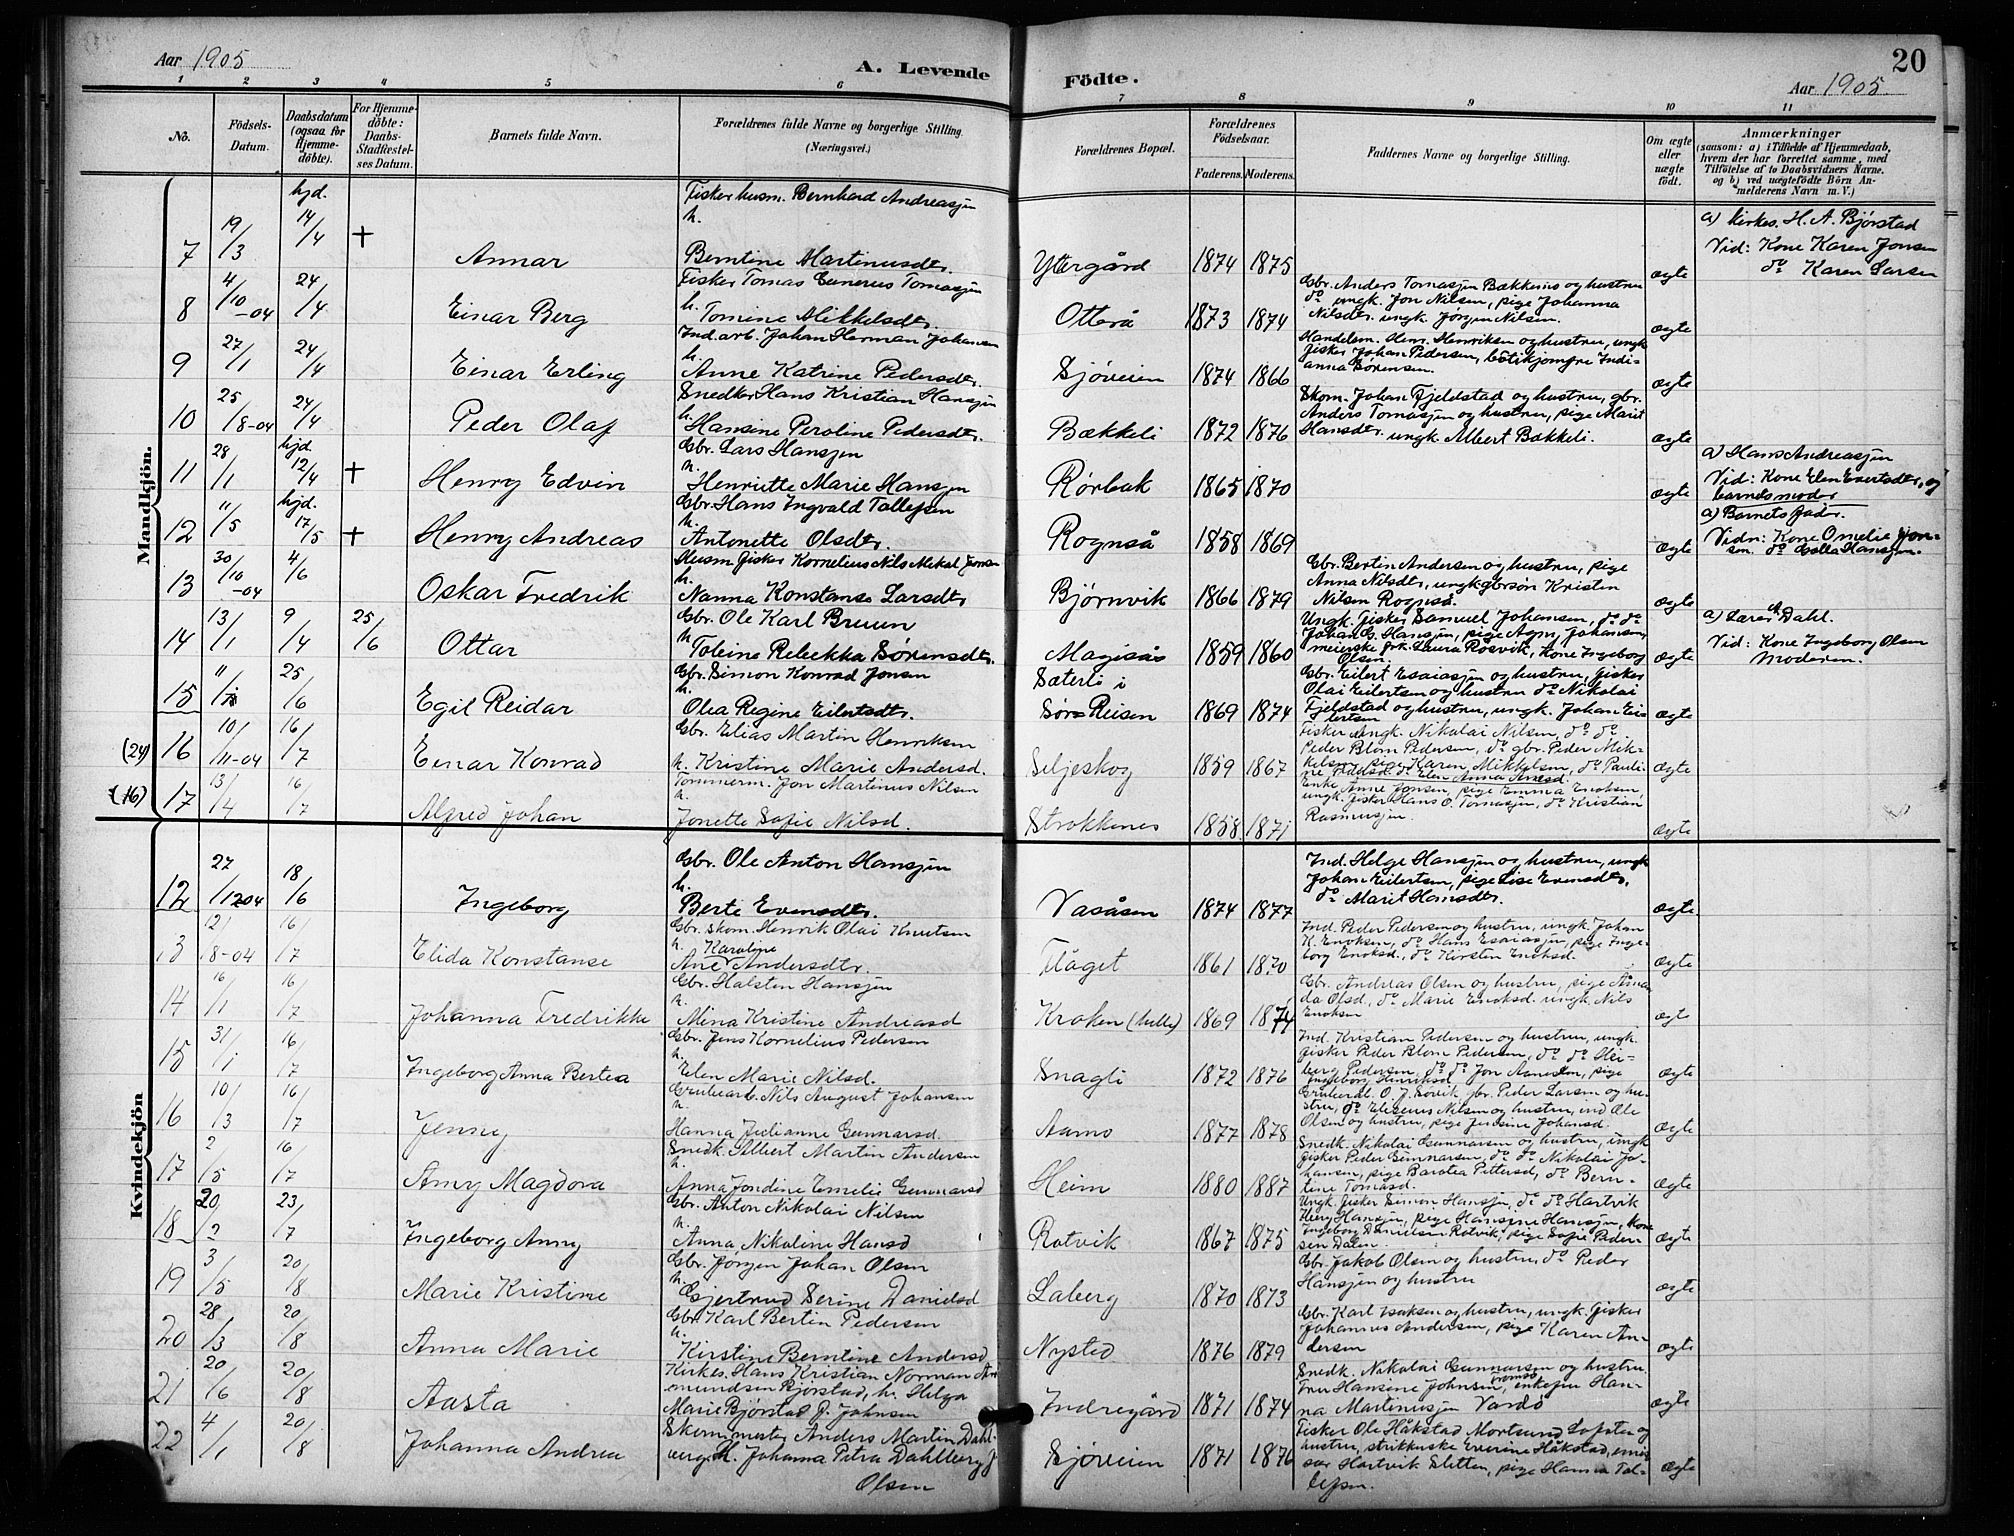 Aar 1905
A. Levende Födte.
20
Aar 1905
1 2 3 4 5 6 7 8 9 10 11
No.
Födsels-Datum.
Daabsdatum (ogsaa for Hjemme-döbte).
For Hjemme-döbte: Daabs-Stadfæstel-ses Datum.
Barnets fulde Navn.
Forældrenes fulde Navne og borgerlige Stilling. (Næringsvei.)
Forældrenes Bopæl.
Forældrenes Födselsaar.
Faderens. Moderens.
Faddernes Navne og borgerlige Stilling.
Om ægte eller uægte födt.
Anmærkninger
(saasom: a) i Tilfælde af Hjemmedaab, hvem der har forrettet samme, med Tilföielse af to Daabsvidners Navne. og b) ved uægtefödte Börn An-melderens Navn m. V.)
Mandkjön.
7 19/3 hjd. 14/4 + Annar
Fisker husm. Bernhard Andreasjen
h. Berntine Martinusdtr.
Ytergård 1874 1875 ægte
a) Kirkes. H. A. Bjørstad
Vid: Kone Karen Jonsen
do Karen Larsen
8 4/10-04 24/4 Einar Berg
Fisker Tomas Tomasjen
h. Tomine Mikkelsdtr.
Otterå 1873 1874
Gbr. Anders Tomasjen Bækkenes og hustru
do ungk. Jon Nilsen, pige Johanna
Nilsdtr. ungk. Jörgen Nilsen. ægte
9 27/1 24/4 Einar Erling
Ind. arb. Johan Herman Johansen
h. Anne Katrine Pedersdtr.
Sjöveien 1874 1866
Handelsm. Henr. Henriksen og hustru, ungk
fisker Johan Pedersen, butikjomfru Indi-
anna Sörensen. ægte
10 25/8-04 24/4 Peder Olaf
Snedker Hans Kristian Hansjen
h. Hansine Peroline Pedersdtr.
Bækkeli 1872 1876
Skom. Johan Fjeldstad og hustru, gbr.
Anders Tomasjen og hustru, pige Marit
Hansdtr. ungk. Albert Bakkeli. ægte
11 28/1 hjd. 12/4 + Henry Edvin
Gbr. Lars Hansjen
h. Henriette Marie Hansjen
Rörbak 1865 1870 ægte
a) Hans Andreasjen
Vid: Kone Elen Evertsdtr. og
barnets moder
12 11/5 hjd. 17/5 + Henry Andreas
Gbr. Hans Ingvald Tollefsen
h. Antonette Olsdtr.
Rognså 1858 1869 ægte
a) Barnets fader.
Vidn: Kone Omelie Jon-
sen. do Hansjen.
13 30/10-04 4/6 Oskar Fredrik
Husm. fisker Kornelius Nils Mikal Jonsen
h. Nanna Konstanse Larsdtr
Björnvik 1866 1879
Gbr. Bertin Andersen og hustru, pige
Anna Nilsdtr, ungk gbrsön Kristen
Nilsen Rognså. ægte
14 13/1 9/4 25/6 Ottar
Gbr. Ole Karl Bruun
h. Tobine Rebekka Sörensdtr.
1859 1860
Ungk. fisker Samuel Johansen, do do
Johan G. Hansjen, pige Agn. Johansen,
meierske frk. Laura Rösvik, Kone Ingeborg
Olsen. ægte
a) Lærer Dahl.
Vid: Kone Ingeborg Olsen
Moderen.
15 11/1 25/6 Egil Reidar
Gbr. Simon Konrad Jonsen
h. Olea Regine Eilertsdtr.
Sæterli i
Sör-Reisen 1869 1874
Gbr. Eilert Esaiasjen og hustru, fisker
Olai Eilertsen og hustru do Nikolai
Fjeldstad og hustru, ungk. Johan Ei-
lertsen ægte
(24) 16 10/11-04 16/7 Einar Konrad
Gbr. Elias Martin Henriksen
h. Kristine Marie Andersd.
Seljeskog 1859 1867
Fisker ungk. Nikolai Nilsen, do do
Peder Blom Pedersen, do gbr. Peder Mik-
kelsen, pige Karen Mikkelsen, do Pauli-
ne do Elen Anna ægte
(16) 17 13/4 16/7 Alfred Johan
Tömmerm. Jon Martinus Nilsen
h. Jonette Sofie Nilsd.
Strokkenes 1858 1871
Enke Anne Jonsen, pige Emma Enoksen,
ungk. fisker Hans O. Tomasjen, do Kristian
Rasmusjen. ægte
Kvindekjön
12 27/12 04 18/6 Ingeborg
Gbr. Ole Anton Hansjen
h. Berte Evensdtr.
Vasåsen 1874 1877
Ind. Helge Hansjen og hustru, ungk
Johan Eilertsen, pige Lise Evensdtr,
do Marit Hansdtr. ægte.
13 21/8-04 16/7 Elida Konstanse
Gbr. skom. Henrik Olai Knutsen
h. Karoline
Ane Andersdtr.
Flåget 1861 1870
Ind. Peder Pedersen og hustru, ungk. Johan
K. Enoksen, do Hans Esaiasjen, pige Inge-
borg Enoksd., do Kirsten Enoksd. ægte
14 16/1 16/7 Johanna Fredrikke
Gbr. Halsten Hansjen
h. Mina Kristine Andreasd
Kroken 1869 1874
Gbr. Andreas Olsen og hustru, pige Aman
da Olsd, do Marie Enoksd. ungk. Nils
Enoksen ægte
15 31/1 16/7 Ingeborg Anna Bertea
Gbr. Jens Kornelius Pedersen
h. Elen Marie Nilsd.
Snagli 1872 1876
Ind. Kristian Pedersen og hustru, ungk.
fisker Peder Blom Pedersen, do do
berg Pedersen, do do Jon pige
Ingeborg Henriksd ægte
16 10/3 16/7 Jenny
Grubearb. Nils August Johansen
h. Hanna Julianne Gunnarsd.
Aamo 1877 1878
Grubearb. O. J. Sörvik gbr. Peder Larsen og hu-
stru, do Elisenus Nilsen og hustru, ind Ole
Olsen og hustru, pige Jensine Johansd. ægte
17 2/5 16/7 Amy Magdora
Snedk. Albert Martin Andersen
h. Anna Jondine Emelie Gunnarsd
Heim 1880 1887
Snedk. Nikolai Gunnarsen og hustru, ungk
fisker Peder Gunnarsen, do do Nikolai Jo-
hansen, pige Barotea Pettersd, do Bern-
tine Tomasd. ægte
18 20/2 23/7 Ingeborg Anny
Gbr. Anton Nikolai Nilsen
h. Anna Nikoline Hansd
Rotvik 1867 1875
Ungk. fisker Simon Hansjen, do do Hartvik
Berg Hansjen, pige Hansine Hansjen, kone
Ingeborg Danielsen Rotvik, pige Sofie Peder-
sen Dalen ægte
19 3/5 20/8 Marie Kristine
Gbr. Jörgen Johan Olsen
h. Gjertrud Serine Danielsd
Laberg 1870 1873
Gbr. Jakob Olsen og hustru, do Peder
Hansjen og hustru ægte
20 28/3 20/8 Anna Marie
Gbr. Karl Bertin Pedersen
h. Kirstine Berntine Andersd
Nysted 1876 1879
Gbr. Karl Isaksen og hustru, ungk. fisker
Johannes Andersen, pige Karen An-
dersen ægte
21 20/6 20/8 Aasta
Kirkes. Hans Kristian Norman A-
mundsen Björstad, h. Helga
Marie Bjørstad f. Johnsen
Indregård 1871 1874
Snedk. Nikolai Gunnarsen og hustru
Fru Hansine Johnsen Tromsö, enkefru Han-
na Martinusjen Vardö ægte
22 4/1 20/8 Johanna Andrea
Skomm ester Anders Martin Dahl-
berg, h. Johanna Petra Dahlberg f
Olsen
Sjöveien 1871 1876
Fisker Ole Håkstad Mortsund Lofoten og
hustru, strikkerske Everine Håkstad,
Hartvik Sletten, pige Hanna Tol-
lefsen. ægte